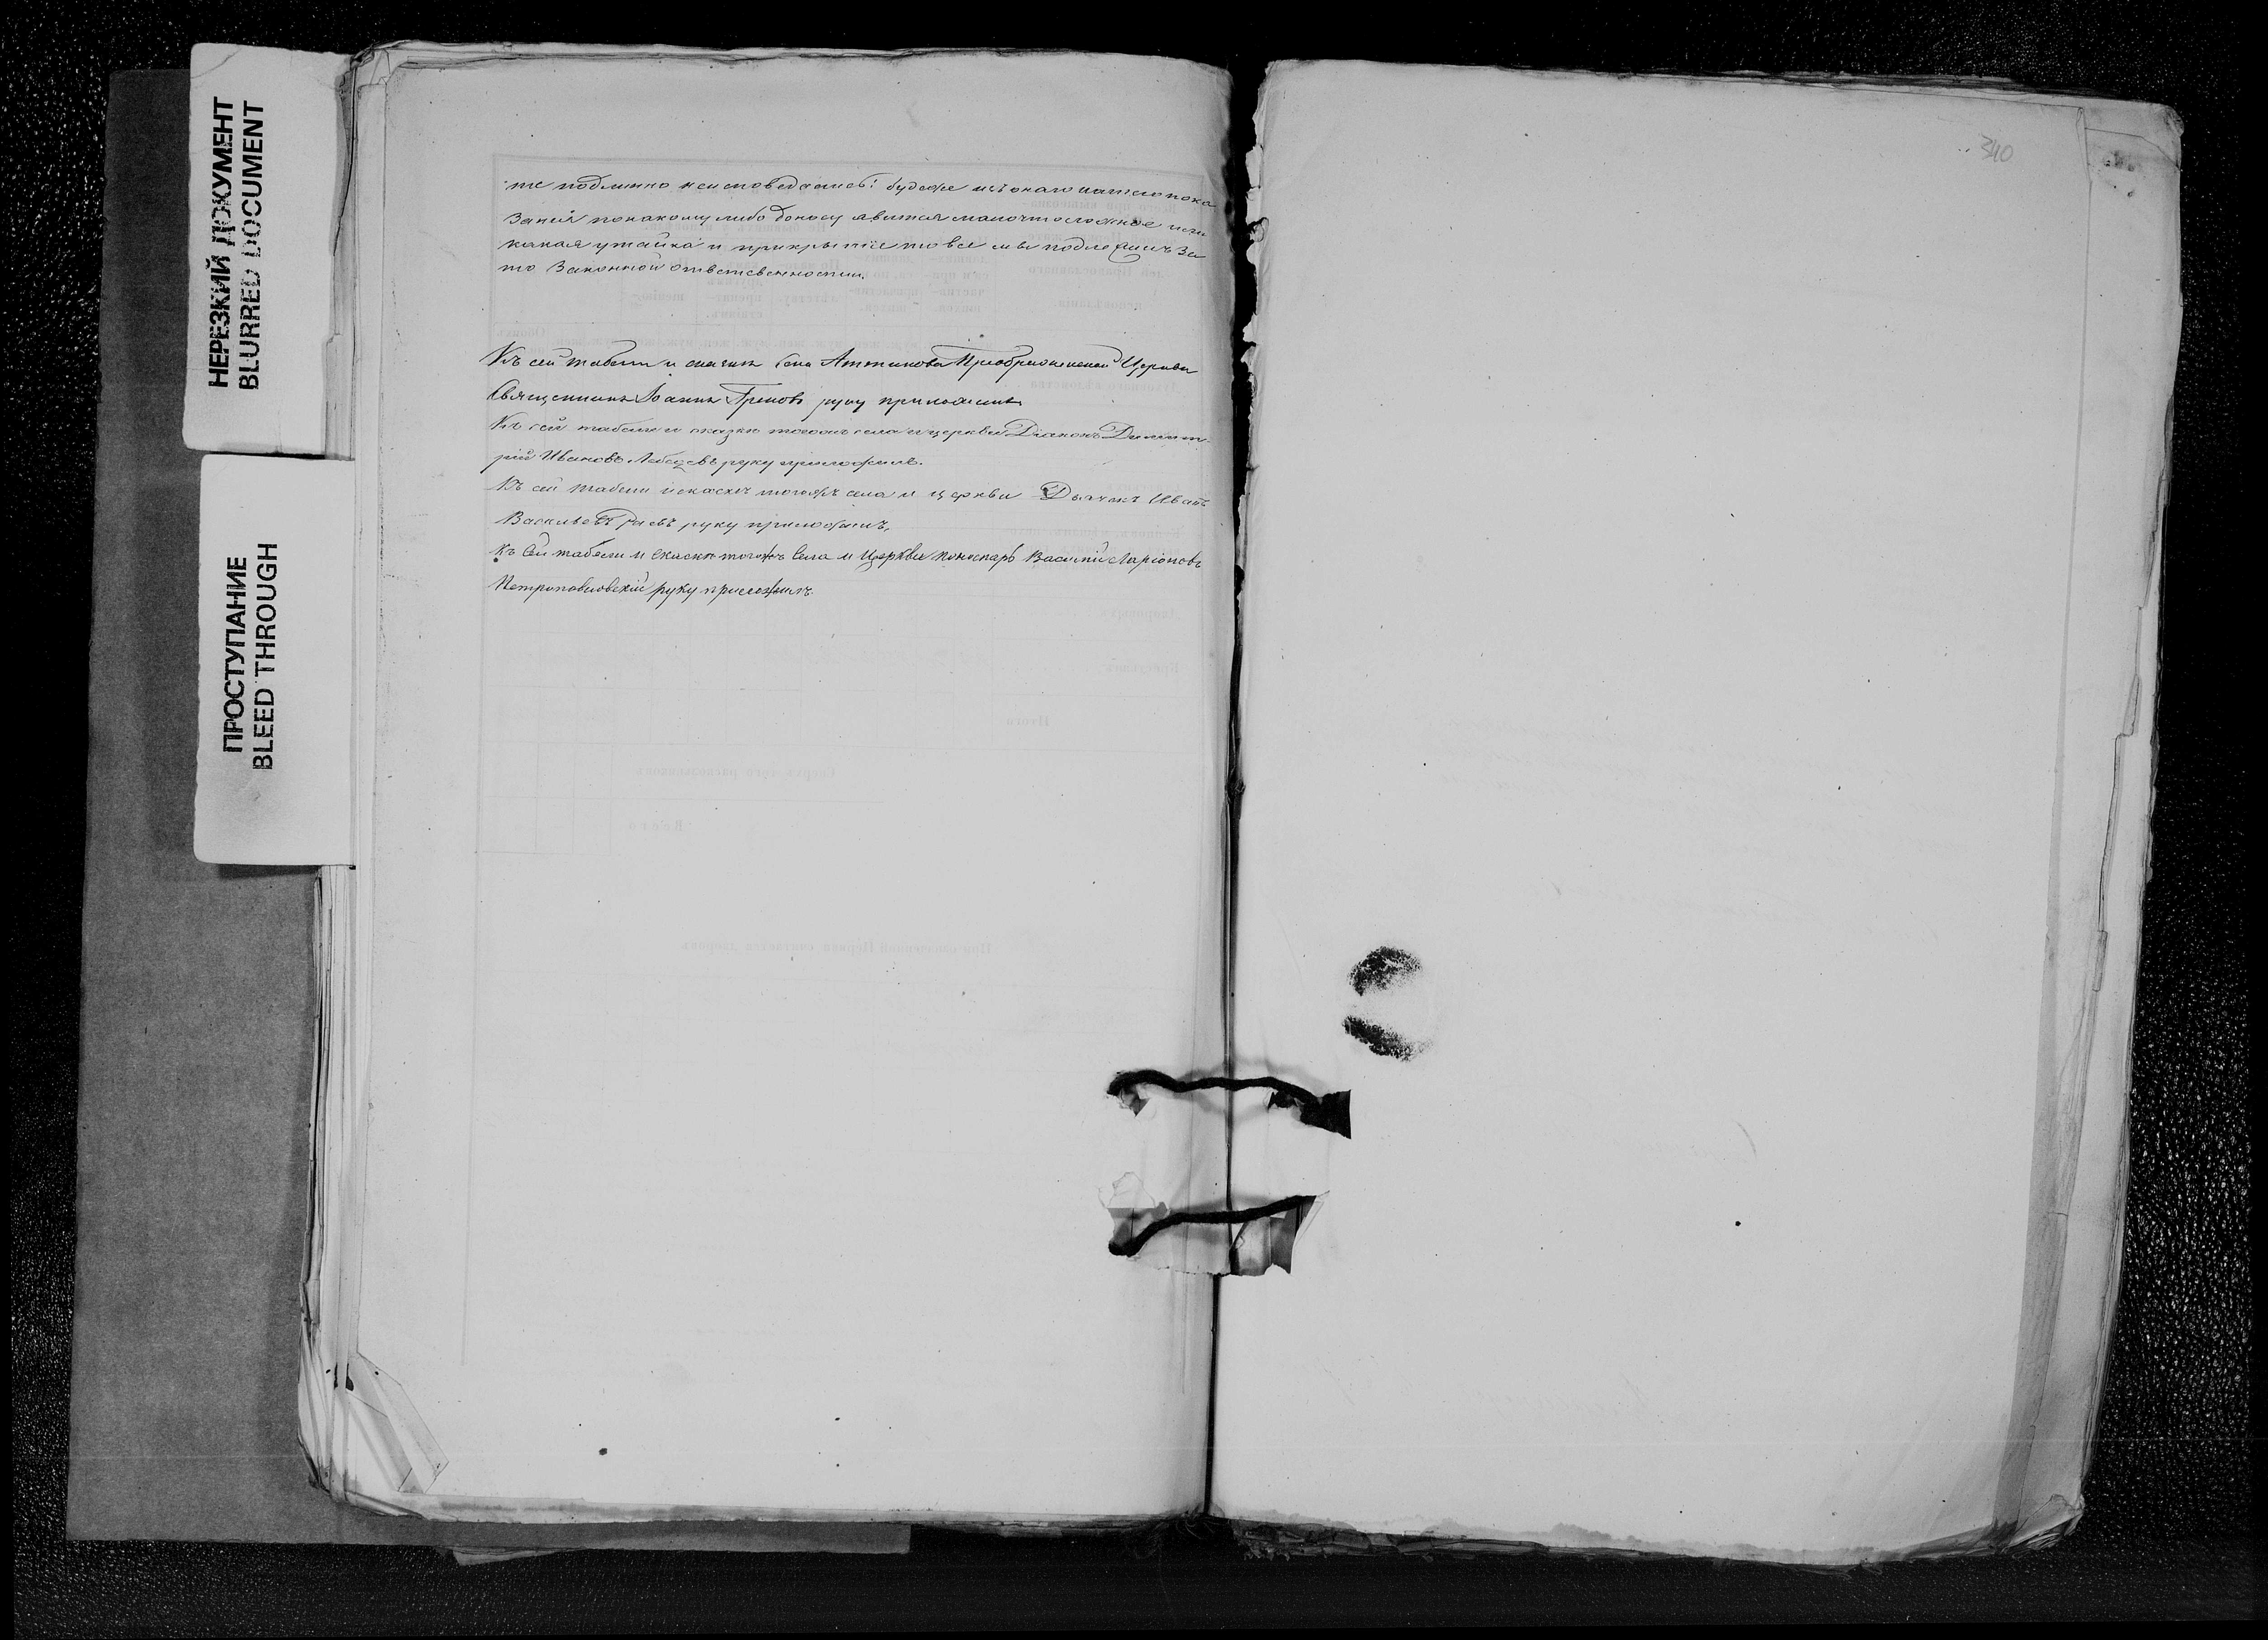 НЕРЕЗКИЙ ДОКУМЕНТ
BLURRED DOCUMENT
ПРОСТУПАНИЕ
BLEED THROUGH
340
те подлинно неисповедались: будеже изъ онаго нашего пока
занiя покакому либо доносу явится малочто ложное или
какая утайка и прикрытiе то все мы подлежимъ за
то законной ответственности.
Къ сей табели и сказки села Преображенской Церкви
Священникъ Iоаннъ Грековъ руку приложилъ
Къ сей табели и сказки тогожъ села и церкви Дiаконъ Димит-
рiй Ивановъ Лебедевъ руку приложилъ.
Къ сей табели и скаске тогожъ села и церкви Дьячекъ Иванъ
Васильевъ руку приложилъ,
Къ сей табели и скаски тогожъ Села и Церкви пономарь Василiй Ларiоновъ
Петропавловскiй руку приложилъ.